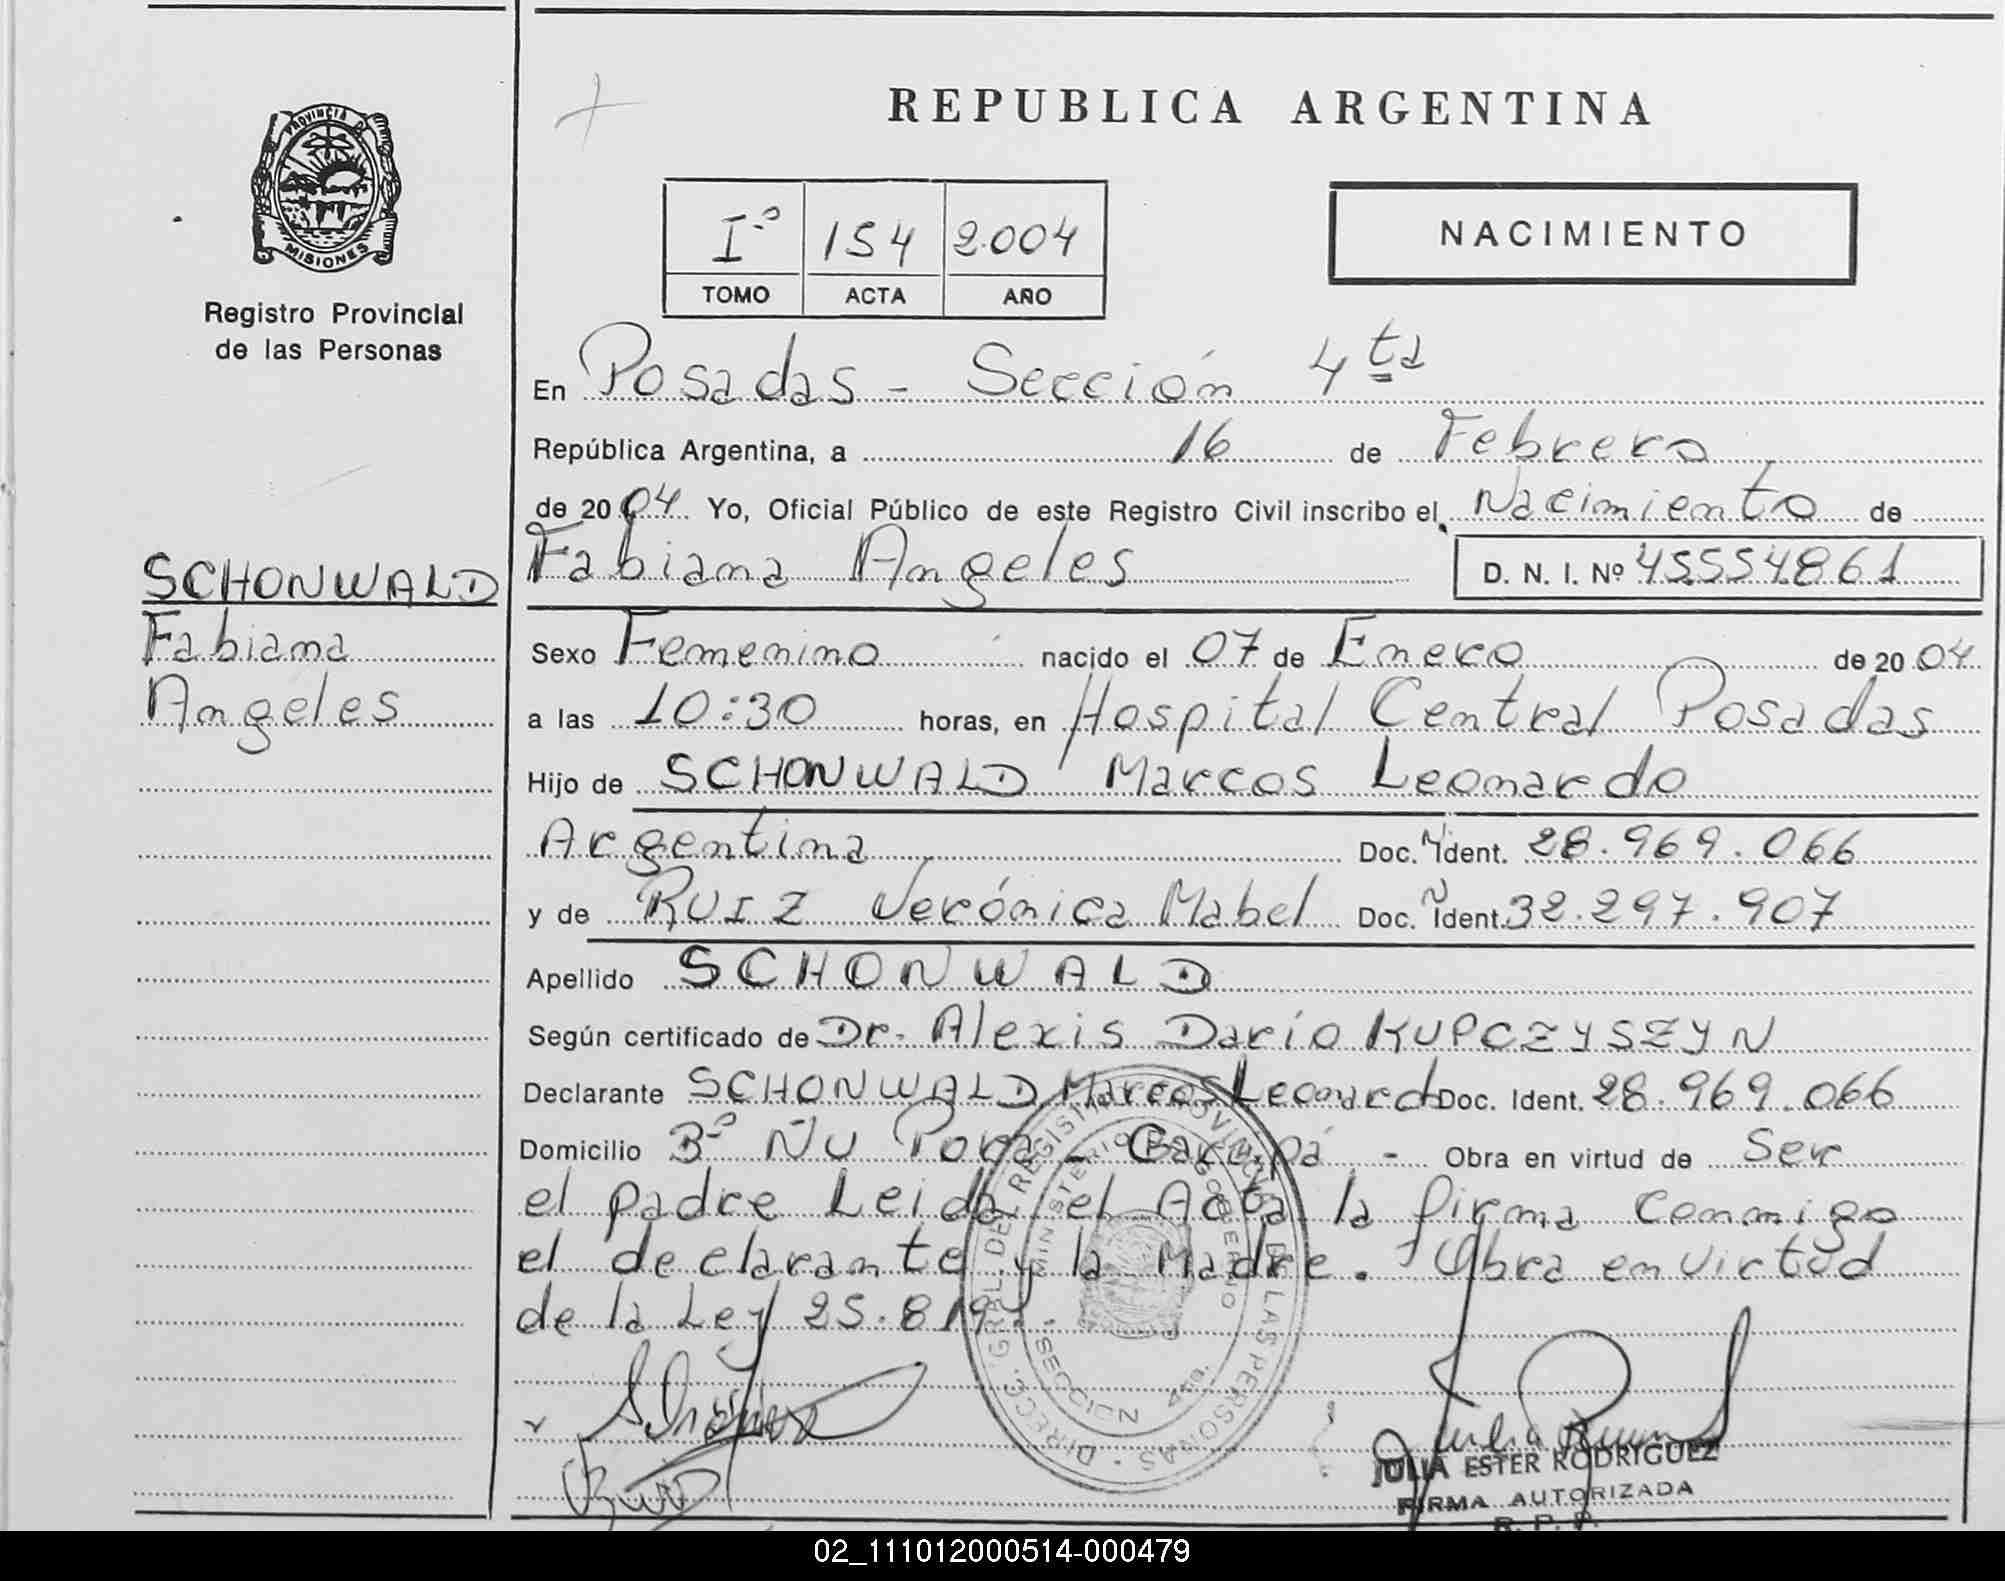 PROVINCIA DE
MISIONES
Registro Provincial
de las Personas
SCHONWALD
Fabiana
Angeles
REPUBLICA ARGENTINA
Iº 154 2.004
TOMO ACTA AÑO
NACIMIENTO
En Posadas - Sección 4ta
República Argentina, a 16 de Febrero
de 2004 Yo, Oficial Público de este Registro Civil inscribo el Nacimiento de
Fabiana Angeles D. N. I. Nº 45554861
Sexo Femenino nacido el 07 de Enero de 2004
a las 10:30 horas, en Hospital Central Posadas
Hijo de SCHONWALD Marcos Leonardo
Argentina Doc. Ident. 28.969.066
y de RUIZ Verónica Mabel Doc. Ident. 32.297.907
Apellido SCHONWALD
Según certificado de Dr. Alexis Darío KUPCZYSZYN
Declarante SCHONWALD Marcos Leonardo Doc. Ident. 28.969.066
Domicilio Bº Ñu Pora - Garupá - Obra en virtud de Ser
el padre Leida el Acta la firma Conmigo
el declarante y la Madre. Obra en virtud
de la Ley 25.819
DIRECC. GRAL. DEL REGISTRO PROVINCIAL DE LAS PERSONAS
MINISTERIO DE GOBIERNO
SECCION 4ta.
JULIA ESTER RODRIGUEZ
FIRMA AUTORIZADA
R. P. P.
02_111012000514-000479